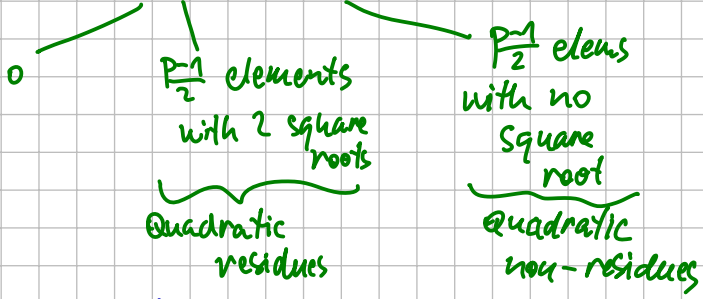 0
p-1/2 elements
with 2 square
roots
Quadratic
residues
p-1/2 elems
with no
square
root
Quadratic
non-residues